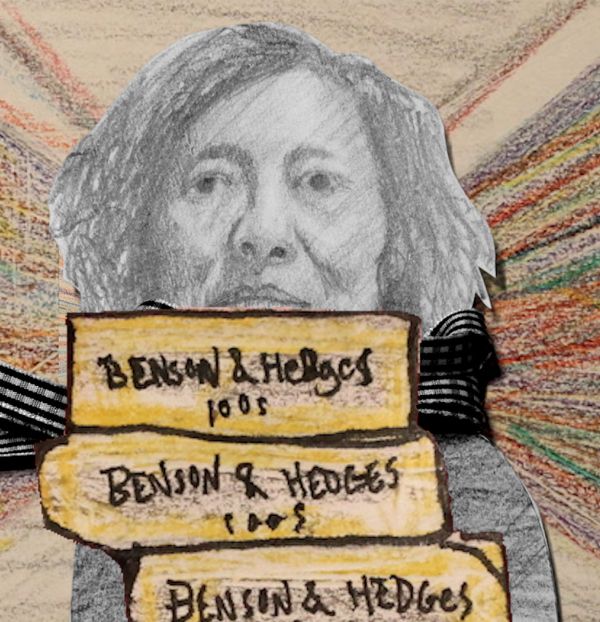 BENSON & HeDgcs
100s
BENSON & HEDGES
100S
BENSON & HEDGes